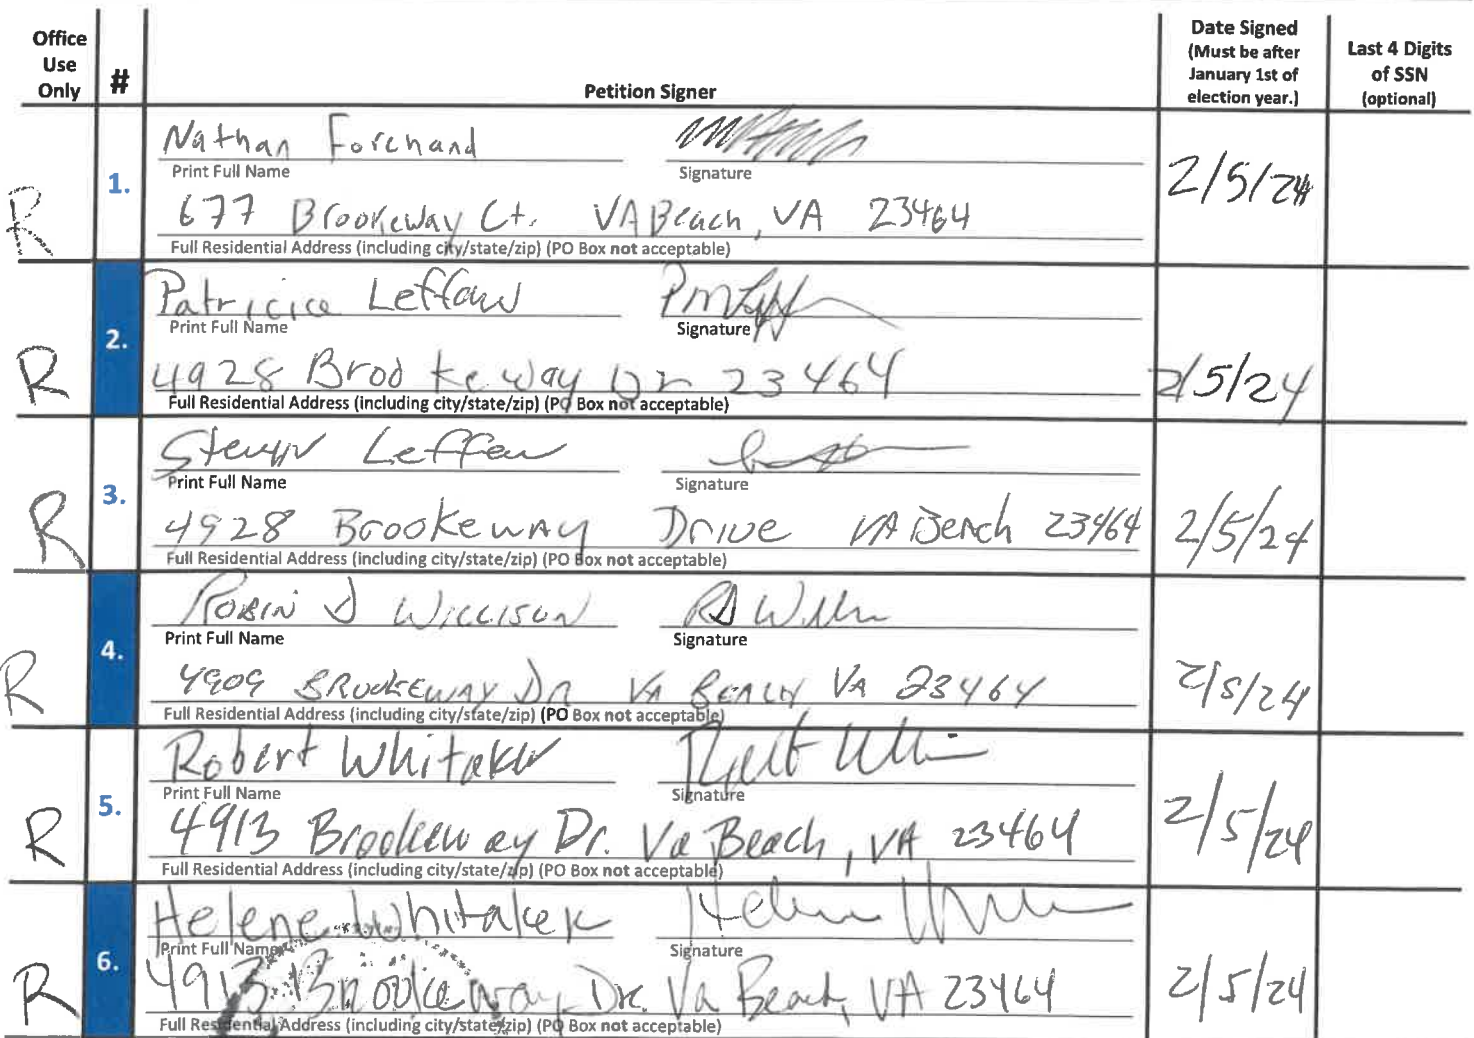 Office Use Only
#
Petition Signer
Date Signed (Must be after January 1st of election year.)
Last 4 Digits of SSN (optional)
R
1.
Nathan Forehand
Print Full Name
Signature
677 Brookeway Ct. VA Beach, VA 23464
Full Residential Address (including city/state/zip) (PO Box not acceptable)
2/5/24
R
2.
Patricia Leffew
Print Full Name
Signature
4928 Brookeway Dr 23464
Full Residential Address (including city/state/zip) (PO Box not acceptable)
2/5/24
R
3.
Leffew
Print Full Name
Signature
4928 Brookeway Drive VA Beach 23464
Full Residential Address (including city/state/zip) (PO Box not acceptable)
2/5/24
R
4.
Robin D Willison
Print Full Name
Signature
4909 Brookeway Dr Va Beach VA 23464
Full Residential Address (including city/state/zip) (PO Box not acceptable)
2/5/24
R
5.
Robert Whitaker
Print Full Name
Signature
4913 Brookeway Dr. Va Beach, VA 23464
Full Residential Address (including city/state/zip) (PO Box not acceptable)
2/5/24
R
6.
Helene Whitaker
Print Full Name
Signature
4913 Brookeway Dr. Va Beach, VA 23464
Full Residential Address (including city/state/zip) (PO Box not acceptable)
2/5/24